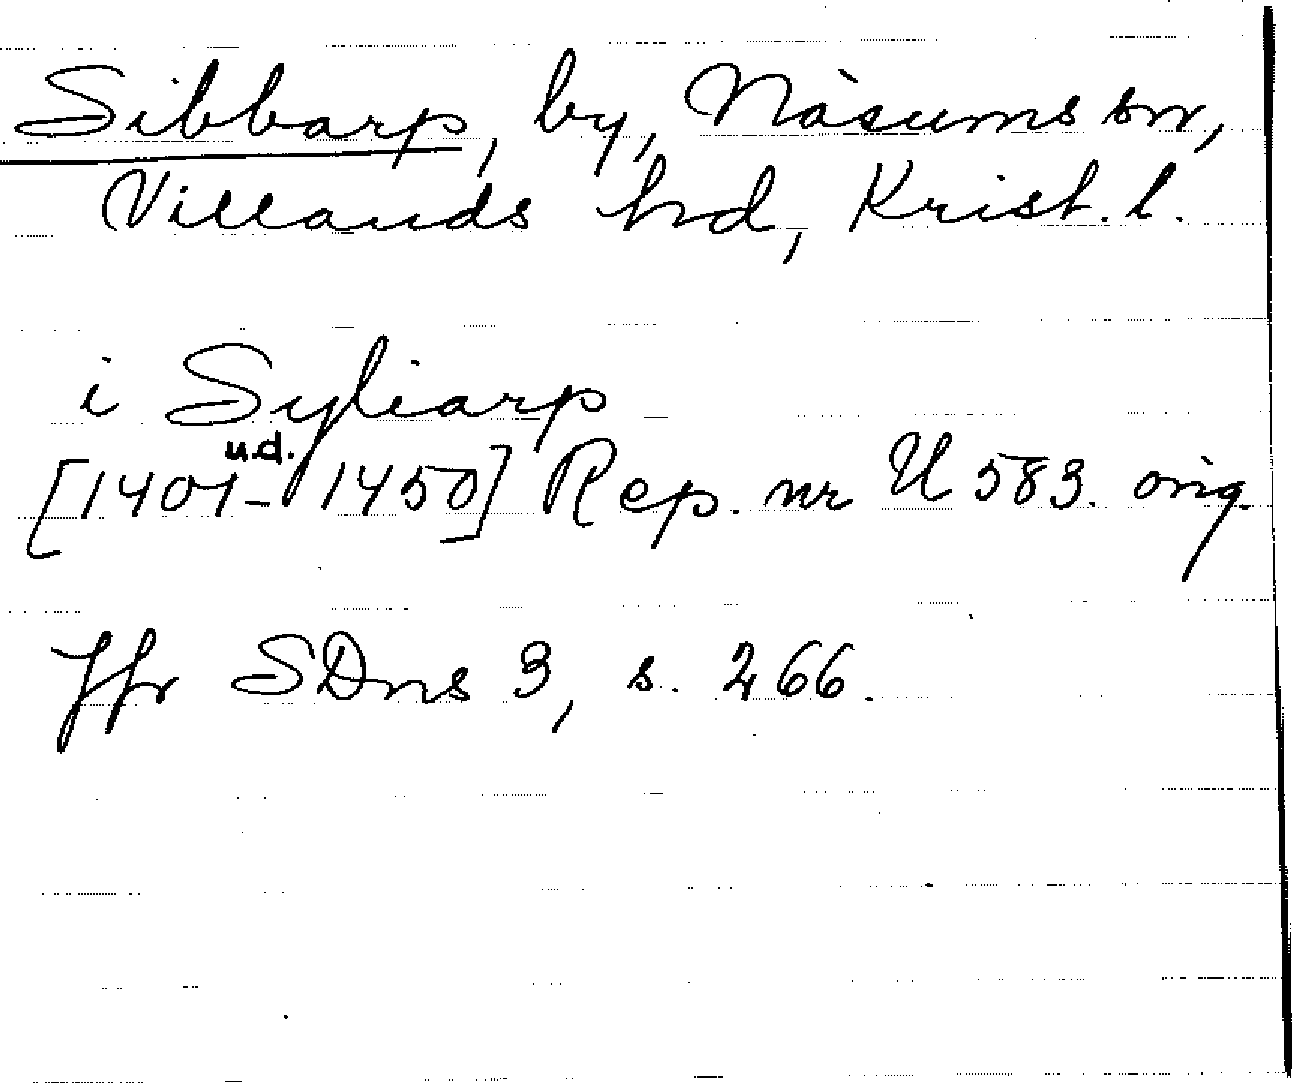 Sibbarp, by, Näsums sn,
Villands hd, Krist. l.
i Syliarp
u.d.
[1401-1450] Rep. nr U 583. orig.
Jfr SDns 3, s. 266.